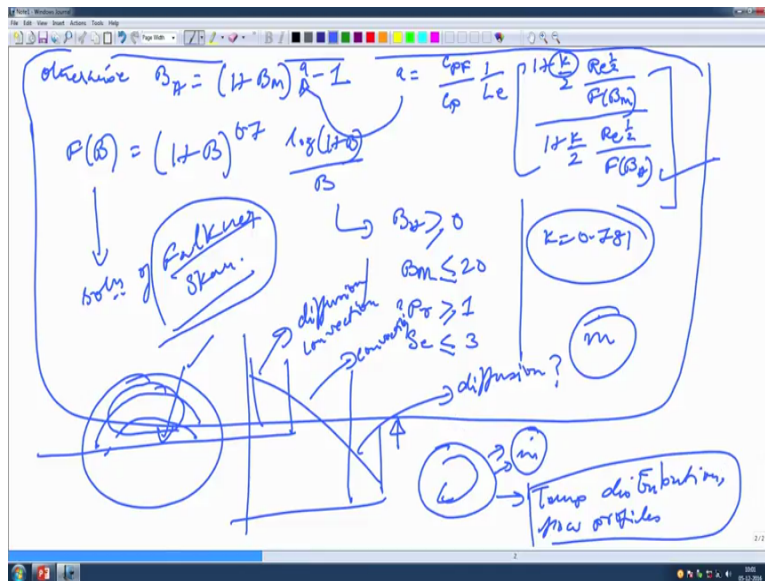 Note1 - Windows Journal
File Edit View Insert Actions Tools Help
Page Width
otherwise B_A = (1+B_M)^a - 1 a = C_PF/C_P 1/Le [1+k/2 Re^½/F(B_M) / 1+k/2 Re^½/F(B_A)]
F(B) = (1+B)^0.7 log(1+B)/B
B_A ≥ 0
k=0.781
B_M ≤ 20
Pr ≥ 1
Sc ≤ 3
ṁ
soln of Falkner
Skan.
diffusion/
convection
convection
diffusion?
ṁ
Temp distribution,
flow profiles
2/2
2
10:01
05-12-2016